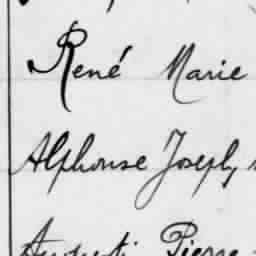 René Marie
Alphonse Joseph
Pierre